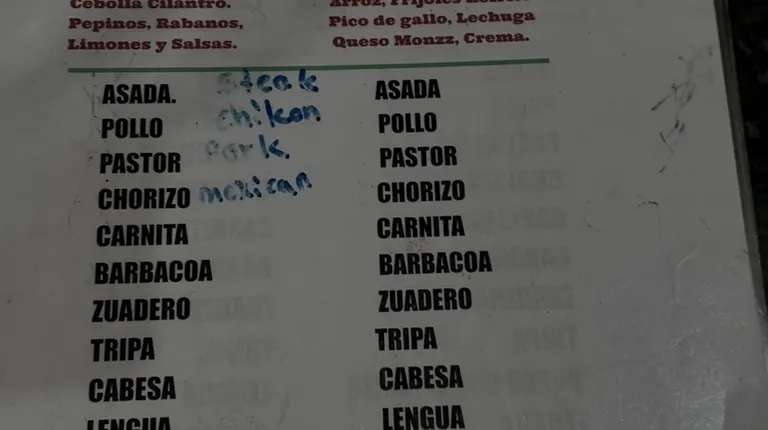 Cebolla Cilantro.
Pepinos, Rabanos,
Limones y Salsas.
Arroz, Frijoles
Pico de gallo, Lechuga
Queso Monzz, Crema.
ASADA. steak
POLLO chikon
PASTOR Pork.
CHORIZO mexican
CARNITA
BARBACOA
ZUADERO
TRIPA
CABESA
LENGUA
ASADA
POLLO
PASTOR
CHORIZO
CARNITA
BARBACOA
ZUADERO
TRIPA
CABESA
LENGUA